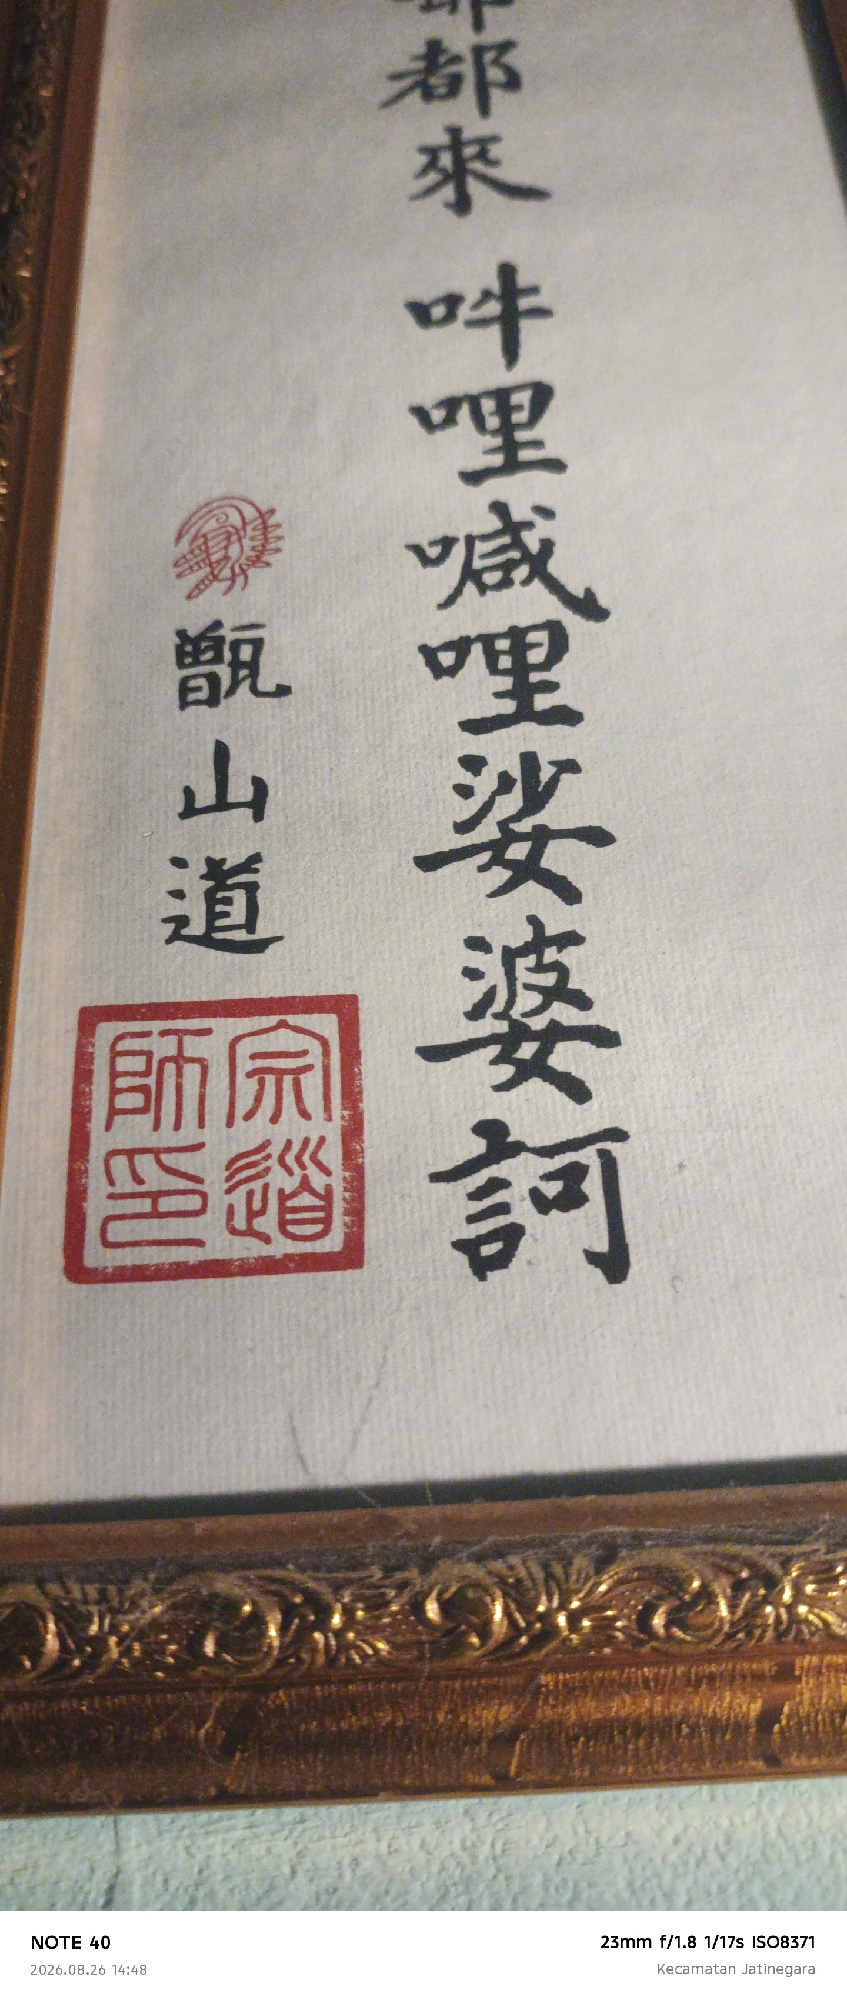 都來 吽哩嘁哩娑婆訶
甑山道
宗道
師印
NOTE 40
2026.08.26 14:48
23mm f/1.8 1/17s ISO8371
Kecamatan Jatinegara